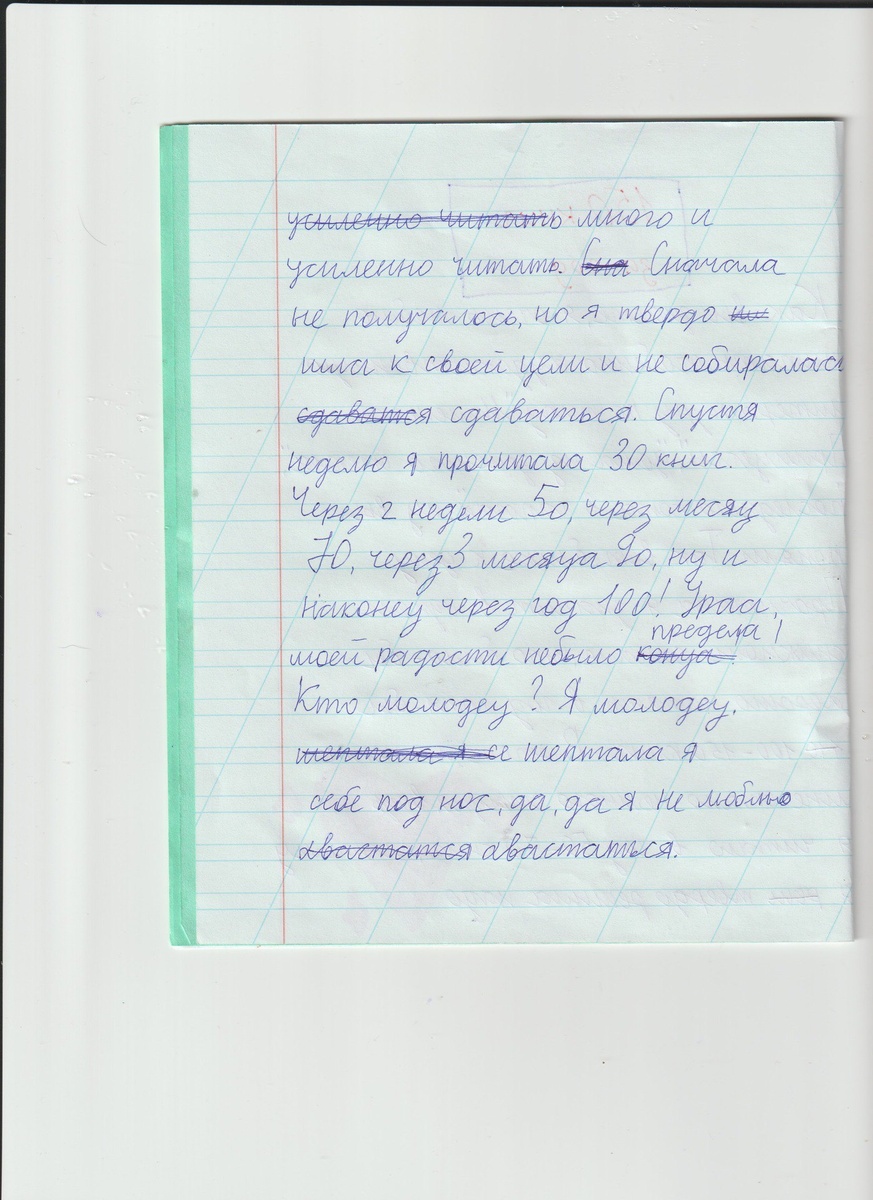 усиленно читать много и
усиленно читать. Сна Сначала
не получалось, но я твердо ш
шла к своей цели и не собиралась
сдаватся сдаваться. Спустя
неделю я прочитала 30 книг.
Через 2 недели 50, через месяц
70, через 3 месяца 90, ну и
наконец через год 100! Ураа,
предела!
моей радости небыло конца
Кто молодец? Я молодец.
шептала я се шептала я
себе под нос, да, да я не люблю
хвастатся хвастаться.